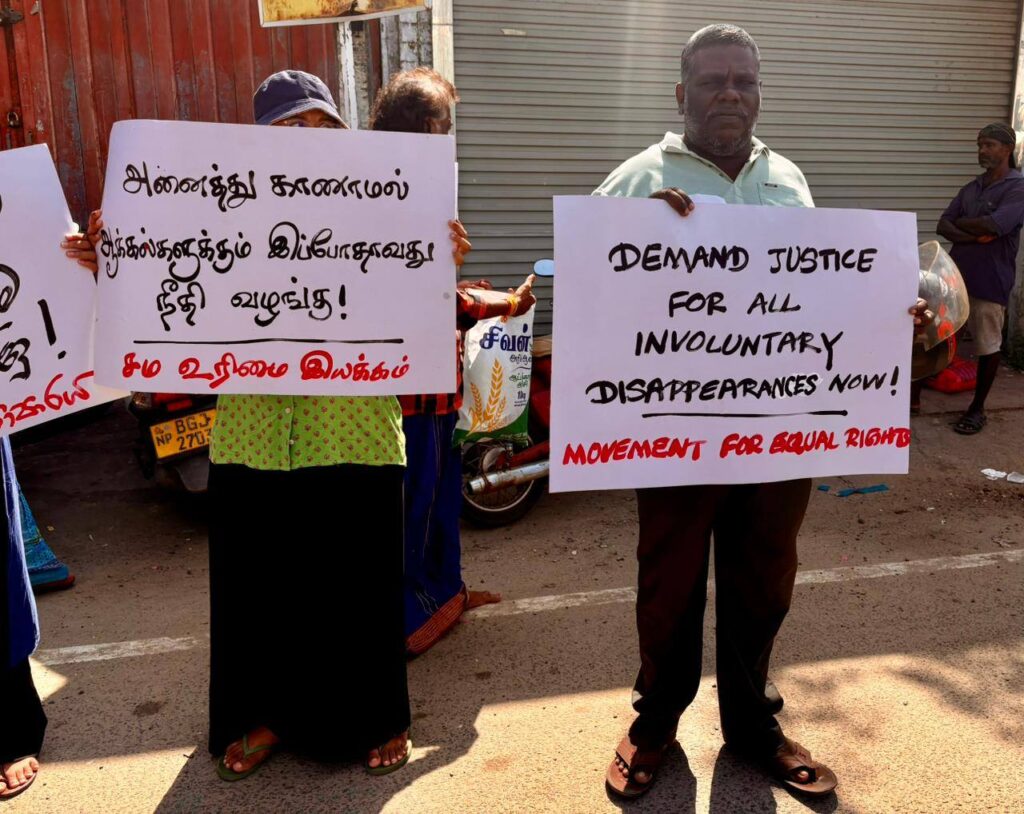 அனைத்து காணாமல்
ஆக்கல்களுக்கும் இப்போதாவது
நீதி வழங்கு!
சம உரிமை இயக்கம்
DEMAND JUSTICE
FOR ALL
INVOLUNTARY
DISAPPEARANCES NOW!
MOVEMENT FOR EQUAL RIGHTS
NP 2703